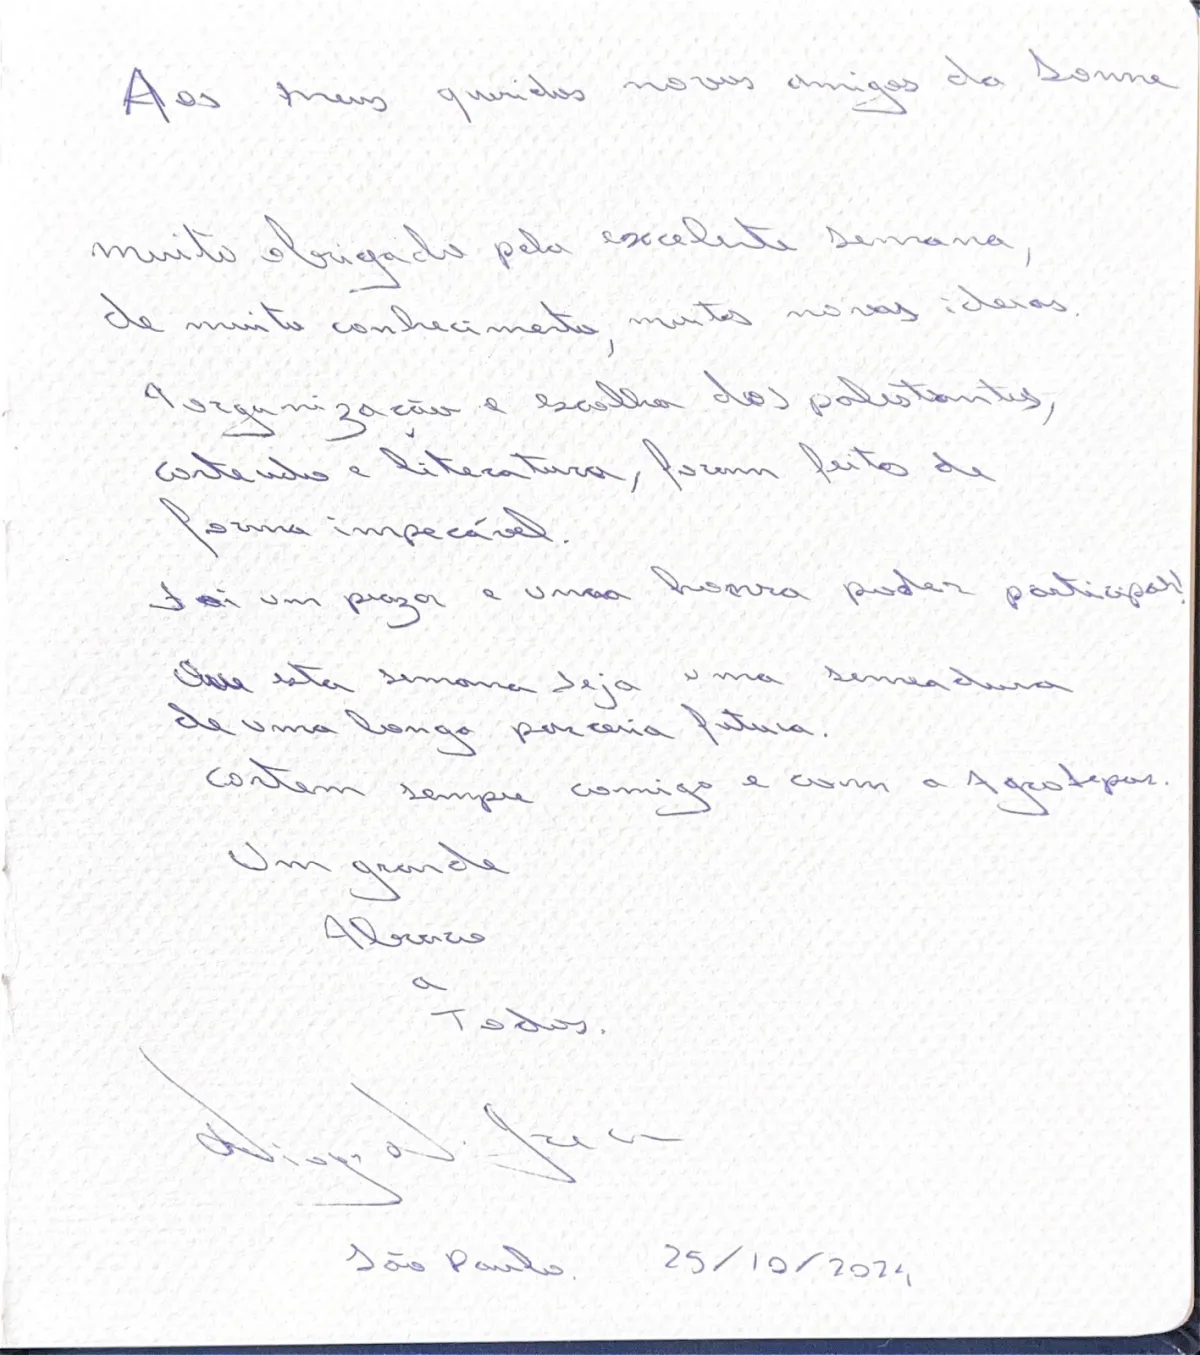 Aos meus queridos novos amigos da Sonne
muito obrigado pela excelente semana,
de muito conhecimento, muitas novas ideias.
A organização e escolha dos palestrantes,
conteúdo e literatura, foram feito de
forma impecável.
Foi um prazer e uma honra poder participar!
Que esta semana seja uma semeadura
de uma longa parceria futura.
Contem sempre comigo e com a Agrotepar.
Um grande
Abraço
a
Todos.
São Paulo. 25/10/2024